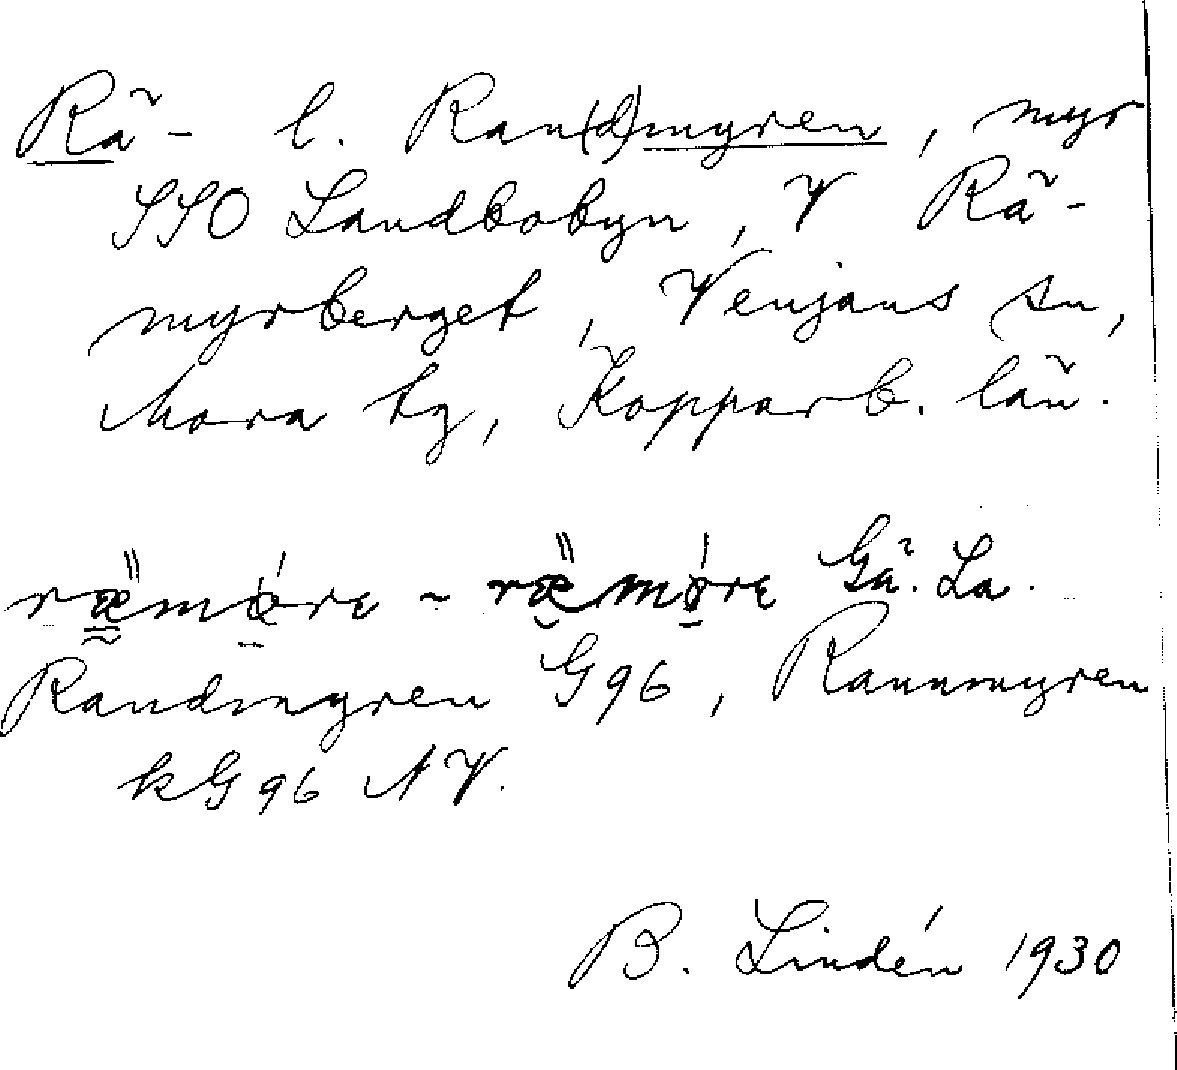 Rä- l. Ran(d)myren, myr
SSO Landbobyn, V Rä-
myrberget, Venjans sn,
Mora tg, Kopparb. län.
Gä. La.
Randmyren G96, Rannmyren
kG96 NV.
B. Lindén 1930